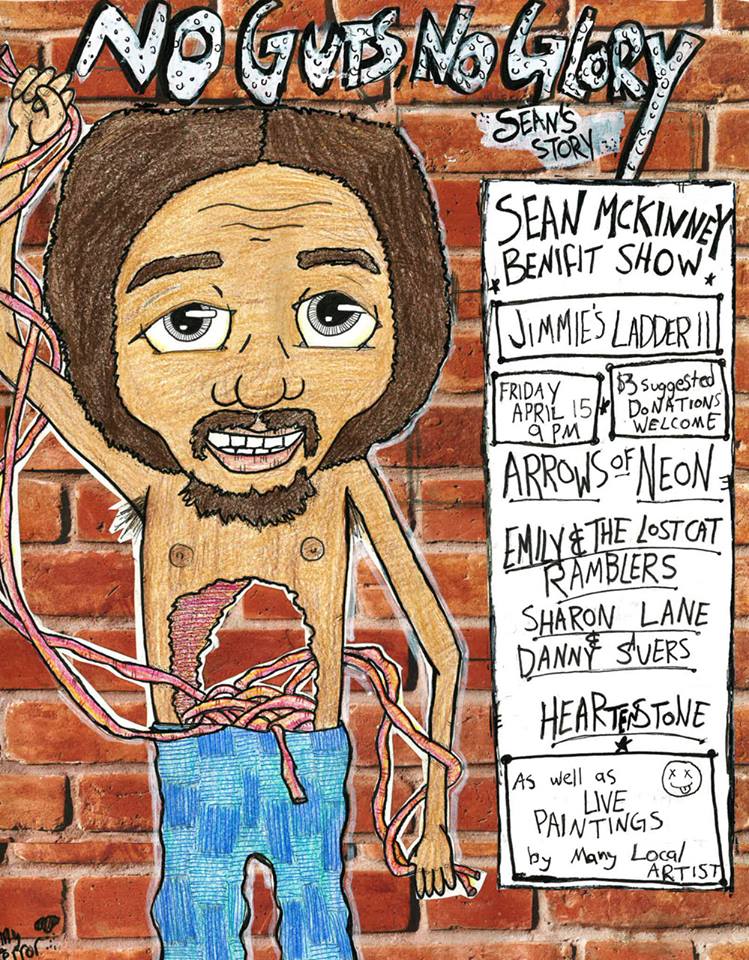 NO GUTS, NO GLORY
SEAN'S
STORY
SEAN MCKINNEY
BENIFIT SHOW
JIMMIE'S LADDER 11
FRIDAY
APRIL 15
9 PM
$3 suggested
DONATIONS
WELCOME
ARROWS OF NEON
EMILY & THE LOST CAT
RAMBLERS
SHARON LANE
&
DANNY SAUERS
HEARTENSTONE
As well as
LIVE
PAINTINGS
by Many Local
ARTIST